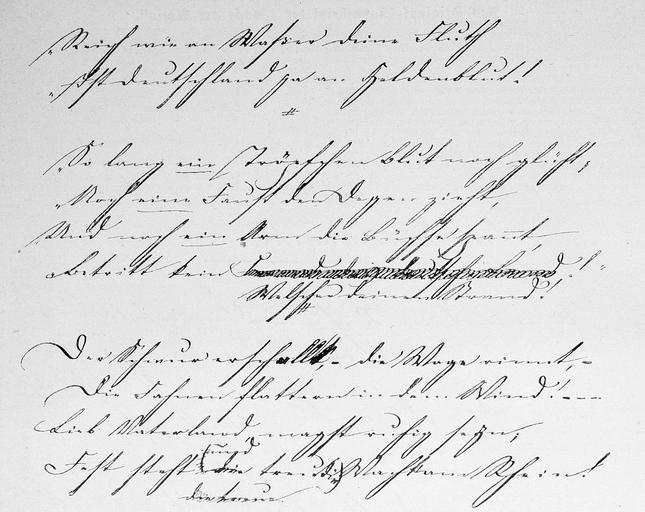 „Reich wie an Wasser deine Fluth
„Ist Deutschland ja an Heldenblut!
#
„So lang ein Tröpfchen Blut noch glüht,
„Noch eine Faust den Degen zieht,
Und noch ein Arm die Büchse spannt,
Betritt kein !"
Welscher deinen Strand!
#
Der Schwur erschallt, – die Woge rinnt, –
Die Fahnen flattern in dem Wind! – – –
Lieb Vaterland, magst ruhig seyn,
und
Fest steht die treu die Wacht am Rhein!
die treue